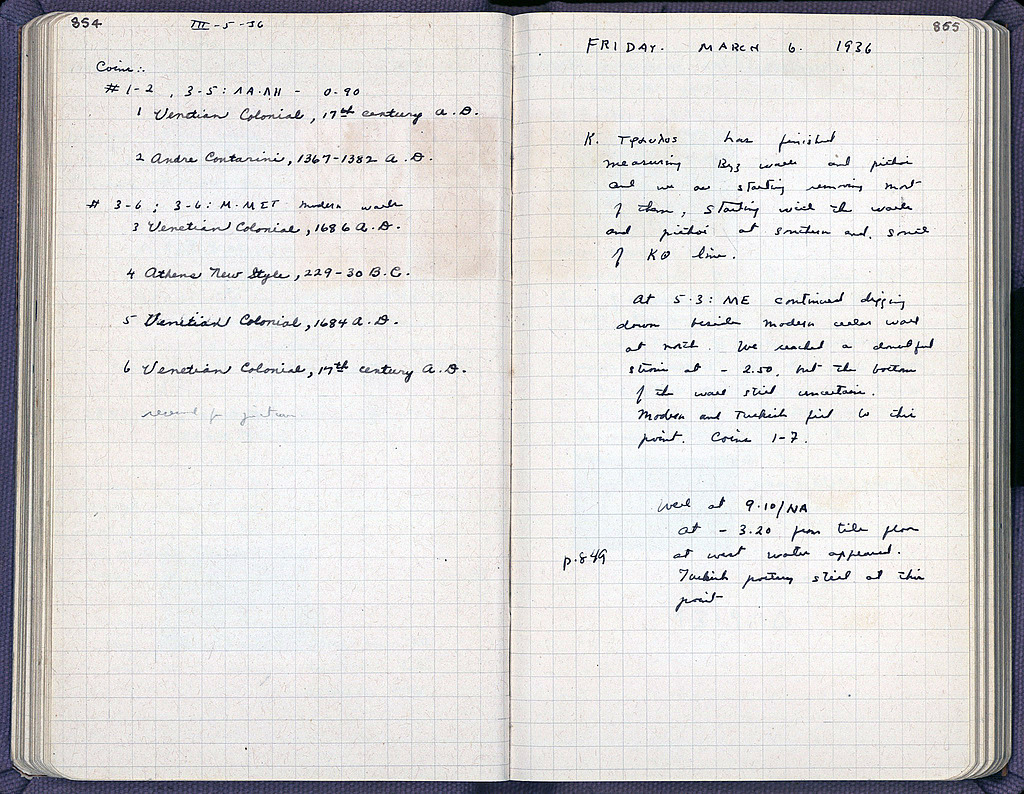 854
III-5-36
Coins:
#1-2, 3-5: ΛΑ-ΛΗ - 0.90
1 Venetian Colonial, 17th century A.D.
2 Andre Contarini, 1367-1382 A.D.
# 3-6; 3-6: M-MET modern walls
3 Venetian Colonial, 1686 A.D.
4 Athens New Style, 229-30 B.C.
5 Venetian Colonial, 1684 A.D.
6 Venetian Colonial, 17th century A.D.
855
FRIDAY. MARCH 6. 1936
K. has finished
measuring Byz walls and pithoi
and we are starting removing most
of them, starting with the walls
and pithoi at southern end, south
of KΘ line.
At 5-3: ME continued digging
down beside modern cellar wall
at north. We reached a doubtful
at - 2.50, but the bottom
of the wall still uncertain.
Modern and Turkish fill to this
point. Coins 1-7.
Well at 9-10/NA
At - 3.20 from tile floor
p.849
at west water appeared.
Turkish pottery still at this
point